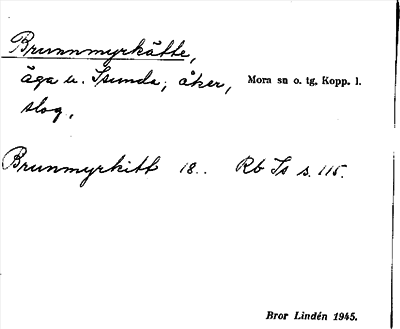 Brunnmyrkätte,
äga u. Isunda; åker, Mora sn o. tg. Kopp. l.
slog.
Brunmyrkitt 18.. Rb Is s. 115.
Bror Lindén 1945.